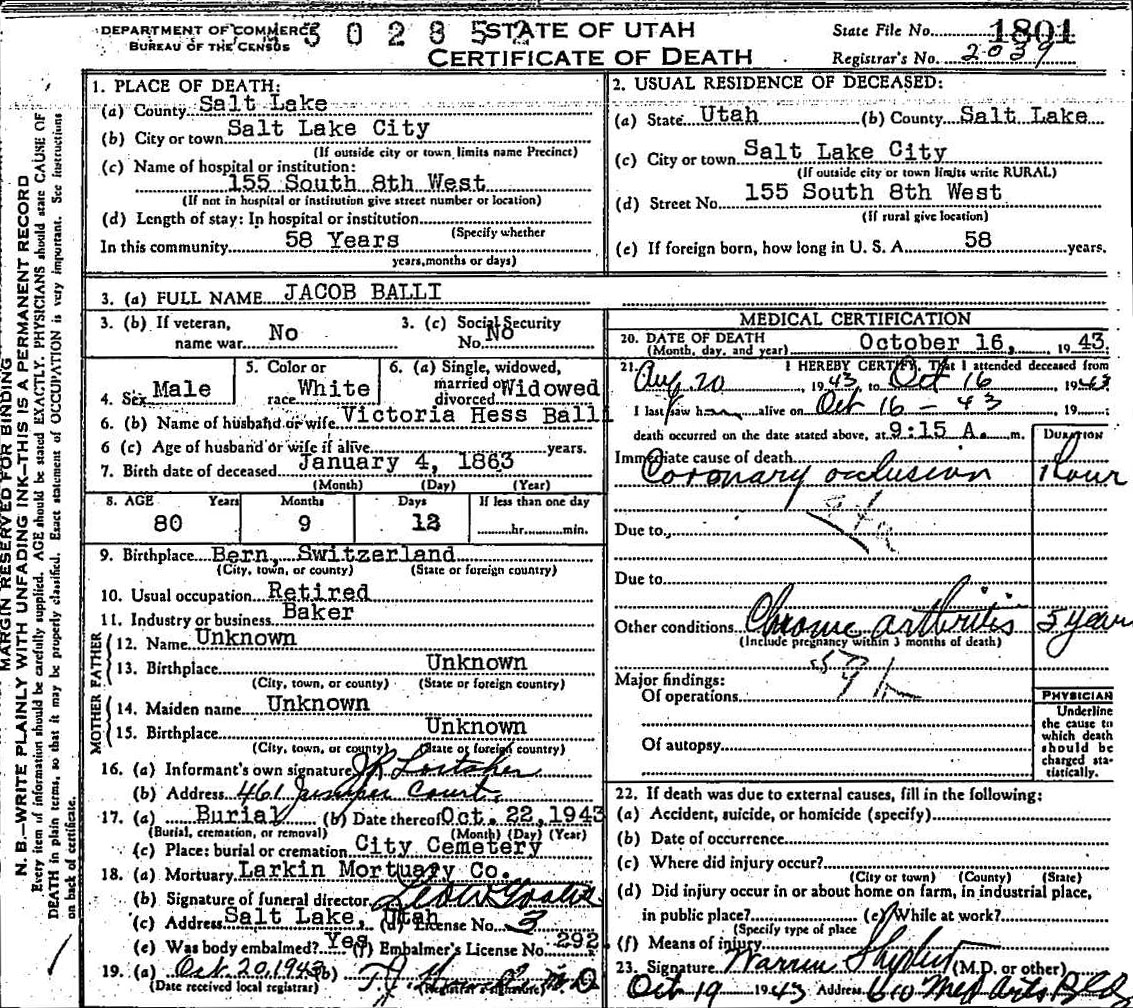 DEPARTMENT OF COMMERCE
BUREAU OF THE CENSUS
STATE OF UTAH
CERTIFICATE OF DEATH
State File No. 1801
Registrar's No. 2039
MARGIN RESERVED FOR BINDING
N. B.—WRITE PLAINLY WITH UNFADING INK—THIS IS A PERMANENT RECORD
Every item of information should be carefully supplied. AGE should be stated EXACTLY. PHYSICIANS should state CAUSE OF
DEATH in plain terms, so that it may be properly classified. Exact statement of OCCUPATION is very important. See instructions
on back of certificate.
1. PLACE OF DEATH:
(a) County Salt Lake
(b) City or town Salt Lake City
(If outside city or town limits name Precinct)
(c) Name of hospital or institution:
155 South 8th West
(If not in hospital or institution give street number or location)
(d) Length of stay: In hospital or institution
(Specify whether
In this community 58 Years
years, months or days)
2. USUAL RESIDENCE OF DECEASED:
(a) State Utah (b) County Salt Lake
(c) City or town Salt Lake City
(If outside city or town limits write RURAL)
(d) Street No. 155 South 8th West
(If rural give location)
(e) If foreign born, how long in U. S. A. 58 years.
3. (a) FULL NAME JACOB BALLI
3. (b) If veteran, name war No
3. (c) Social Security No. No
4. Sex Male
5. Color or race White
6. (a) Single, widowed, married or divorced Widowed
6. (b) Name of husband or wife Victoria Hess Balli
6 (c) Age of husband or wife if alive years.
7. Birth date of deceased January 4, 1863
(Month) (Day) (Year)
8. AGE Years Months Days If less than one day
80 9 12 hr. min.
9. Birthplace Bern, Switzerland
(City, town, or county) (State or foreign country)
10. Usual occupation Retired
11. Industry or business Baker
FATHER
12. Name Unknown
13. Birthplace Unknown
(City, town, or county) (State or foreign country)
MOTHER
14. Maiden name Unknown
15. Birthplace Unknown
(City, town, or county) (State or foreign country)
16. (a) Informant's own signature
(b) Address 461 Juniper Court
17. (a) Burial (b) Date thereof Oct. 22, 1943
(Burial, cremation, or removal) (Month) (Day) (Year)
(c) Place: burial or cremation City Cemetery
18. (a) Mortuary Larkin Mortuary Co.
(b) Signature of funeral director
(c) Address Salt Lake, Utah (d) License No. 3
(e) Was body embalmed? Yes (f) Embalmer's License No. 292
19. (a) Oct. 20, 1943 (b) T. J. M. D.
(Date received local registrar) (Registrar's signature)
MEDICAL CERTIFICATION
20. DATE OF DEATH
(Month, day, and year) October 16, 1943.
21. I HEREBY CERTIFY, That I attended deceased from
Aug 20 1943, to Oct 16 1943
I last saw h alive on Oct 16 - 43 19 ;
death occurred on the date stated above, at 9:15 A. m.
DURATION
Immediate cause of death
Coronary occlusion 1 hour
Due to
Due to
Other conditions Chronic arthritis 5 years
(Include pregnancy within 3 months of death)
Major findings:
Of operations
Of autopsy
PHYSICIAN
Underline
the cause to
which death
should be
charged sta-
tistically.
22. If death was due to external causes, fill in the following:
(a) Accident, suicide, or homicide (specify)
(b) Date of occurrence
(c) Where did injury occur?
(City or town) (County) (State)
(d) Did injury occur in or about home on farm, in industrial place,
in public place? (e) While at work?
(Specify type of place
(f) Means of injury
23. Signature Warren Shepley (M.D. or other)
Oct 19 1943 Address 610 Med Arts Bldg